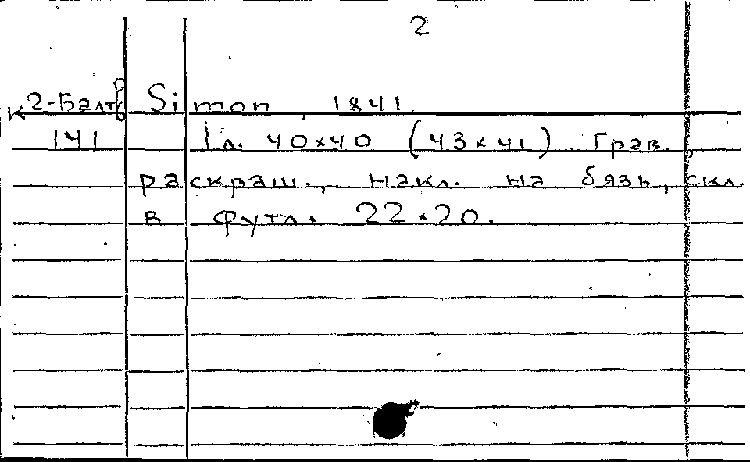 2
К 2-Балтр Simon, 1841.
141 1 л. 40×40 (43×41). Грав.,
раскраш., накл. на бязь, скл.
в футл. 22×20.